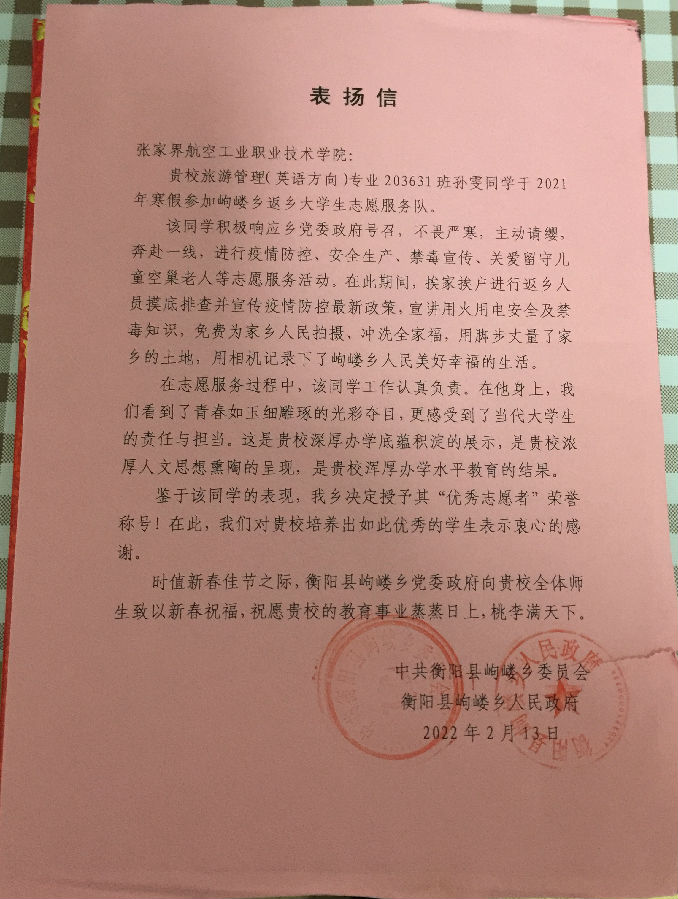 表扬信
张家界航空工业职业技术学院：
贵校旅游管理（英语方向）专业203631班孙雯同学于2021
年寒假参加岣嵝乡返乡大学生志愿服务队。
该同学积极响应乡党委政府号召，不畏严寒，主动请缨，
奔赴一线，进行疫情防控、安全生产、禁毒宣传、关爱留守儿
童空巢老人等志愿服务活动。在此期间，挨家挨户进行返乡人
员摸底排查并宣传疫情防控最新政策，宣讲用火用电安全及禁
毒知识，免费为家乡人民拍摄、冲洗全家福，用脚步丈量了家
乡的土地，用相机记录下了岣嵝乡人民美好幸福的生活。
在志愿服务过程中，该同学工作认真负责。在他身上，我
们看到了青春如玉细雕琢的光彩夺目，更感受到了当代大学生
的责任与担当。这是贵校深厚办学底蕴积淀的展示，是贵校浓
厚人文思想熏陶的呈现，是贵校浑厚办学水平教育的结果。
鉴于该同学的表现，我乡决定授予其“优秀志愿者”荣誉
称号！在此，我们对贵校培养出如此优秀的学生表示衷心的感
谢。
时值新春佳节之际，衡阳县岣嵝乡党委政府向贵校全体师
生致以新春祝福，祝愿贵校的教育事业蒸蒸日上，桃李满天下。
中共衡阳县岣嵝乡委员会
衡阳县岣嵝乡人民政府
2022年2月13日